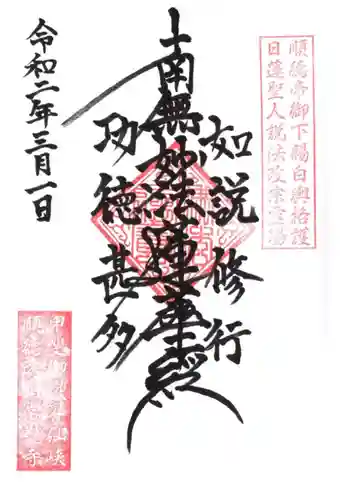 順徳帝御下賜白輿格護
日蓮聖人説法改宗霊場
如説修行
南無妙法蓮華経
功徳甚多
令和二年三月一日